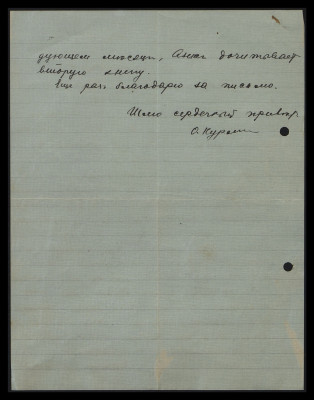 дующем месяце, Анна дочитывает
вторую книгу.
Еще раз благодарю за письмо.
Шлю сердечный привет.
О. Курган